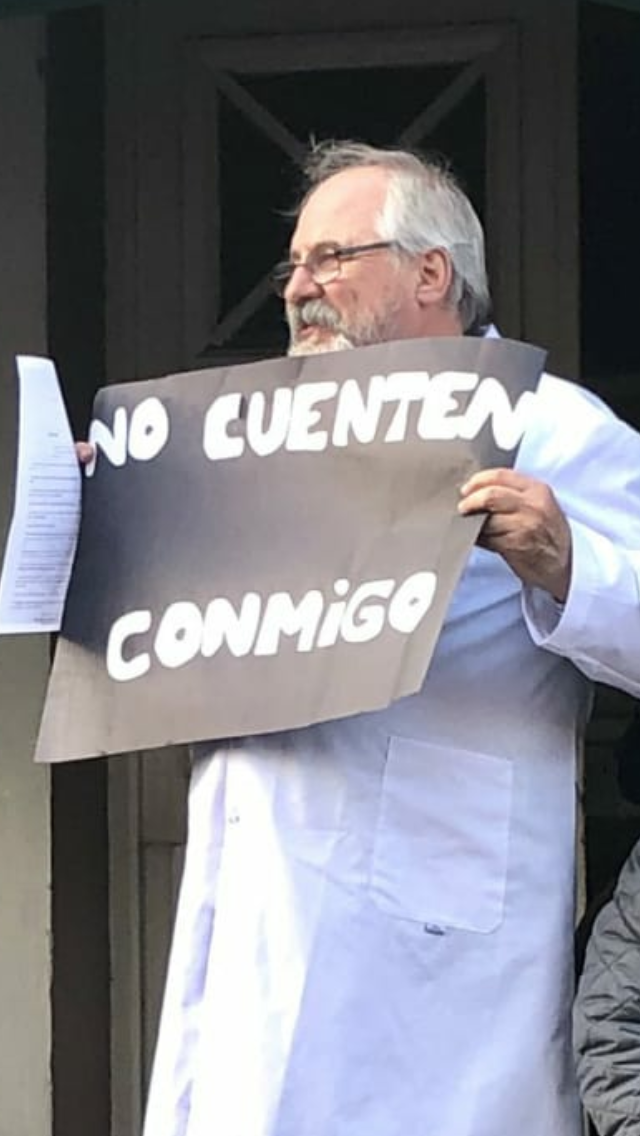 NO CUENTEN
CONMiGO